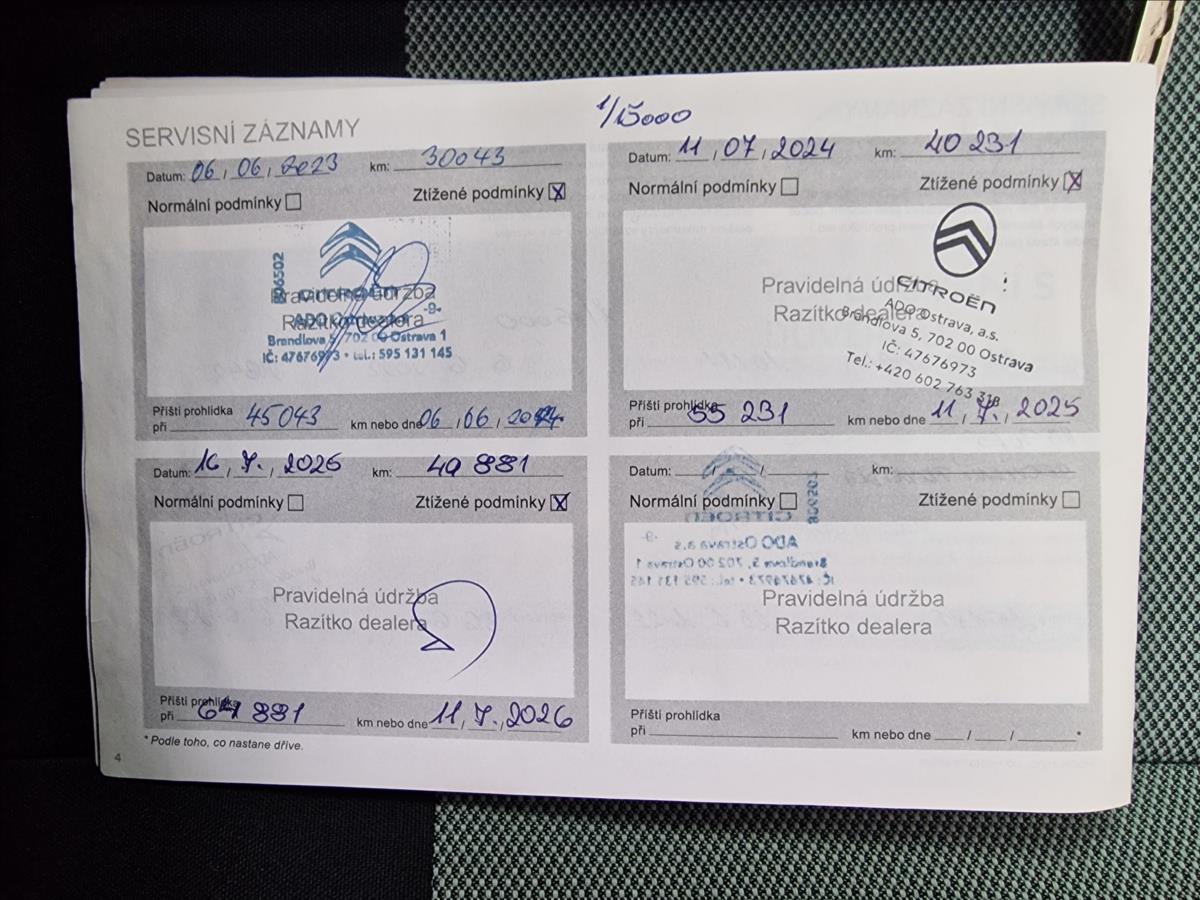 1/15000
SERVISNÍ ZÁZNAMY
Datum: 06 / 06 / 2023 km: 30043
Normální podmínky Ztížené podmínky X
806502
CITROËN
Pravidelná údržba
-9-
Razítko dealera
ADO
Brandlova 5, 702 00 Ostrava 1
IČ: 47676973 • tel.: 595 131 145
Příští prohlídka
při 45043 km nebo dne 06 / 06 / 2024
Datum: 11 / 07 / 2024 km: 40 231
Normální podmínky Ztížené podmínky X
Pravidelná údržba
Razítko dealera
CITROËN
ADO Ostrava, a.s.
Brandlova 5, 702 00 Ostrava
IČ: 47676973
Tel.: +420 602 763 318
Příští prohlídka
při 55 231 km nebo dne 11 / 7. / 2025
Datum: 16 / 7. / 2025 km: 49 881
Normální podmínky Ztížené podmínky X
Pravidelná údržba
Razítko dealera
Příští prohlídka
při 64 881 km nebo dne 11 / 7. / 2026
Datum: / / km:
Normální podmínky Ztížené podmínky
Pravidelná údržba
Razítko dealera
Příští prohlídka
při km nebo dne / / *
* Podle toho, co nastane dříve.
4